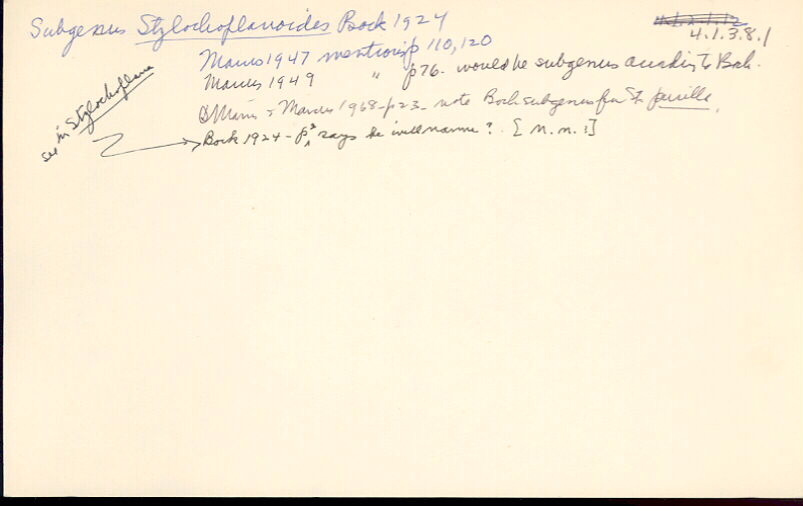 Subgenus Stylochoplanoides Bock 1924
4.1.3.8.1
Marcus 1947 mentions p 110, 120
Marcus 1949 " p76. would be subgenus according to Bock.
Marcus & Marcus 1968-p23- note Bock subgenus for St. parvilla.
see in Stylochoplana
Bock 1924-p2 says he will name? [n.n.!]